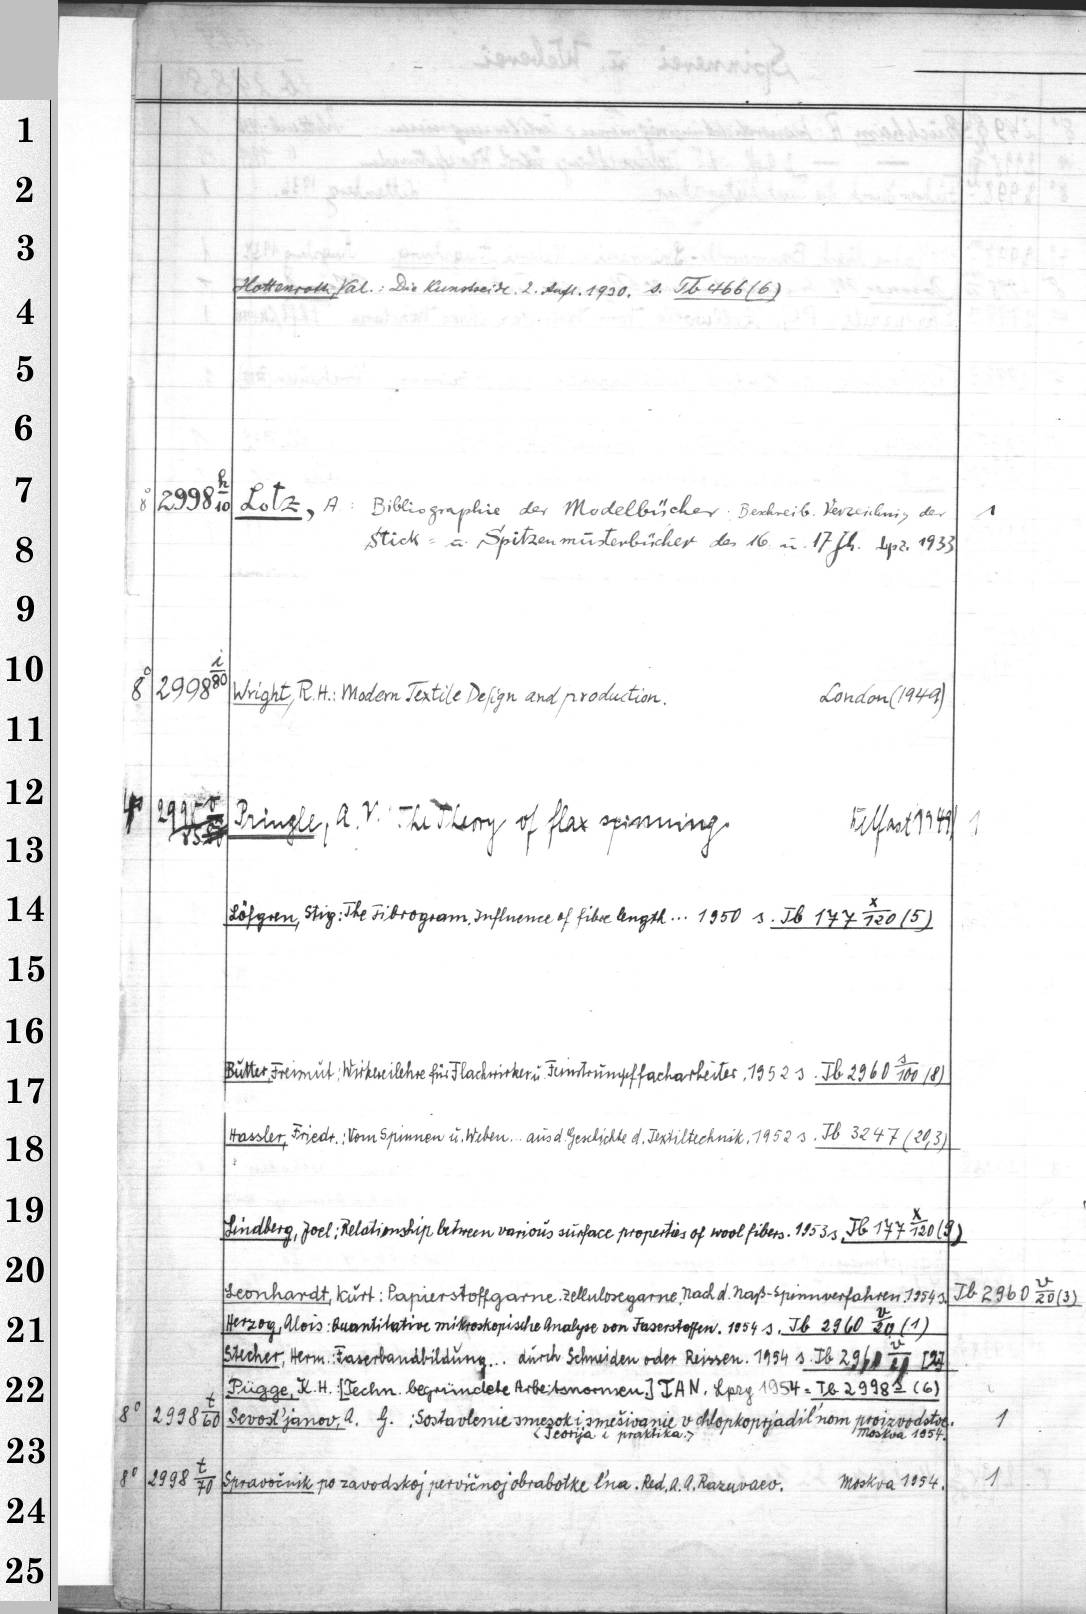 1
2
3
4
5
6
7
8
9
10
11
12
13
14
15
16
17
18
19
20
21
22
23
24
25
Hottenroth, Val.: Die Kunstseide. 2. Aufl. 1930. s. Tb 466 (6)
8° 2998 h/10 Lotz, A: Bibliographie der Modelbücher. Beschreib. Verzeichnis der 1
Stick- u. Spitzenmusterbücher des 16. u. 17 Jh. Lpz. 1933
8° 2998 i/80 Wright, R.H.: Modern Textile Design and production. London (1949)
4° Pringle, A. V.: The Theory of flax spinning. Belfast 1949 1
Löfgren, Stig: The Fibrogram. Influence of fibre length... 1950 s. Tb 177 x/120 (5)
Butter, Freimut: Wirkereilehre für Flachwirker u. Feinstrumpffacharbeiter. 1952 s. Tb 2960 s/100 (8)
Hassler, Friedr.: Vom Spinnen u. Weben... aus d. Geschichte d. Textiltechnik. 1952 s. Tb 3247 (20,3)
Lindberg, Joel: Relationship between various surface properties of wool fibers. 1953 s. Tb 177 x/120 (9)
Leonhardt, Kurt: Papierstoffgarne. Zellulosegarne. Nach d. Naß-Spinnverfahren. 1954 s. Tb 2960 v/20 (3)
Herzog, Alois: Quantitative mikroskopische Analyse von Faserstoffen. 1954 s. Tb 2960 v/20 (1)
Stecher, Herm.: Faserbandbildung... durch Schneiden oder Reissen. 1954 s. Tb 2960 v/20 [2]
Pügge, K.H.: [Techn. begründete Arbeitsnormen.] TAN. Lpzg 1954 = Tb 2998 s (6)
8° 2998 t/60 Sevost'janov, A. G.: Sostavlenie smesok i smešivanie v chlopkoprjadil'nom proizvodstve. 1
<Teorija i praktika.> Moskva 1954.
8° 2998 t/70 Spravočnik po zavodskoj pervičnoj obrabotke l'na. Red. A. A. Razuvaev. Moskva 1954. 1